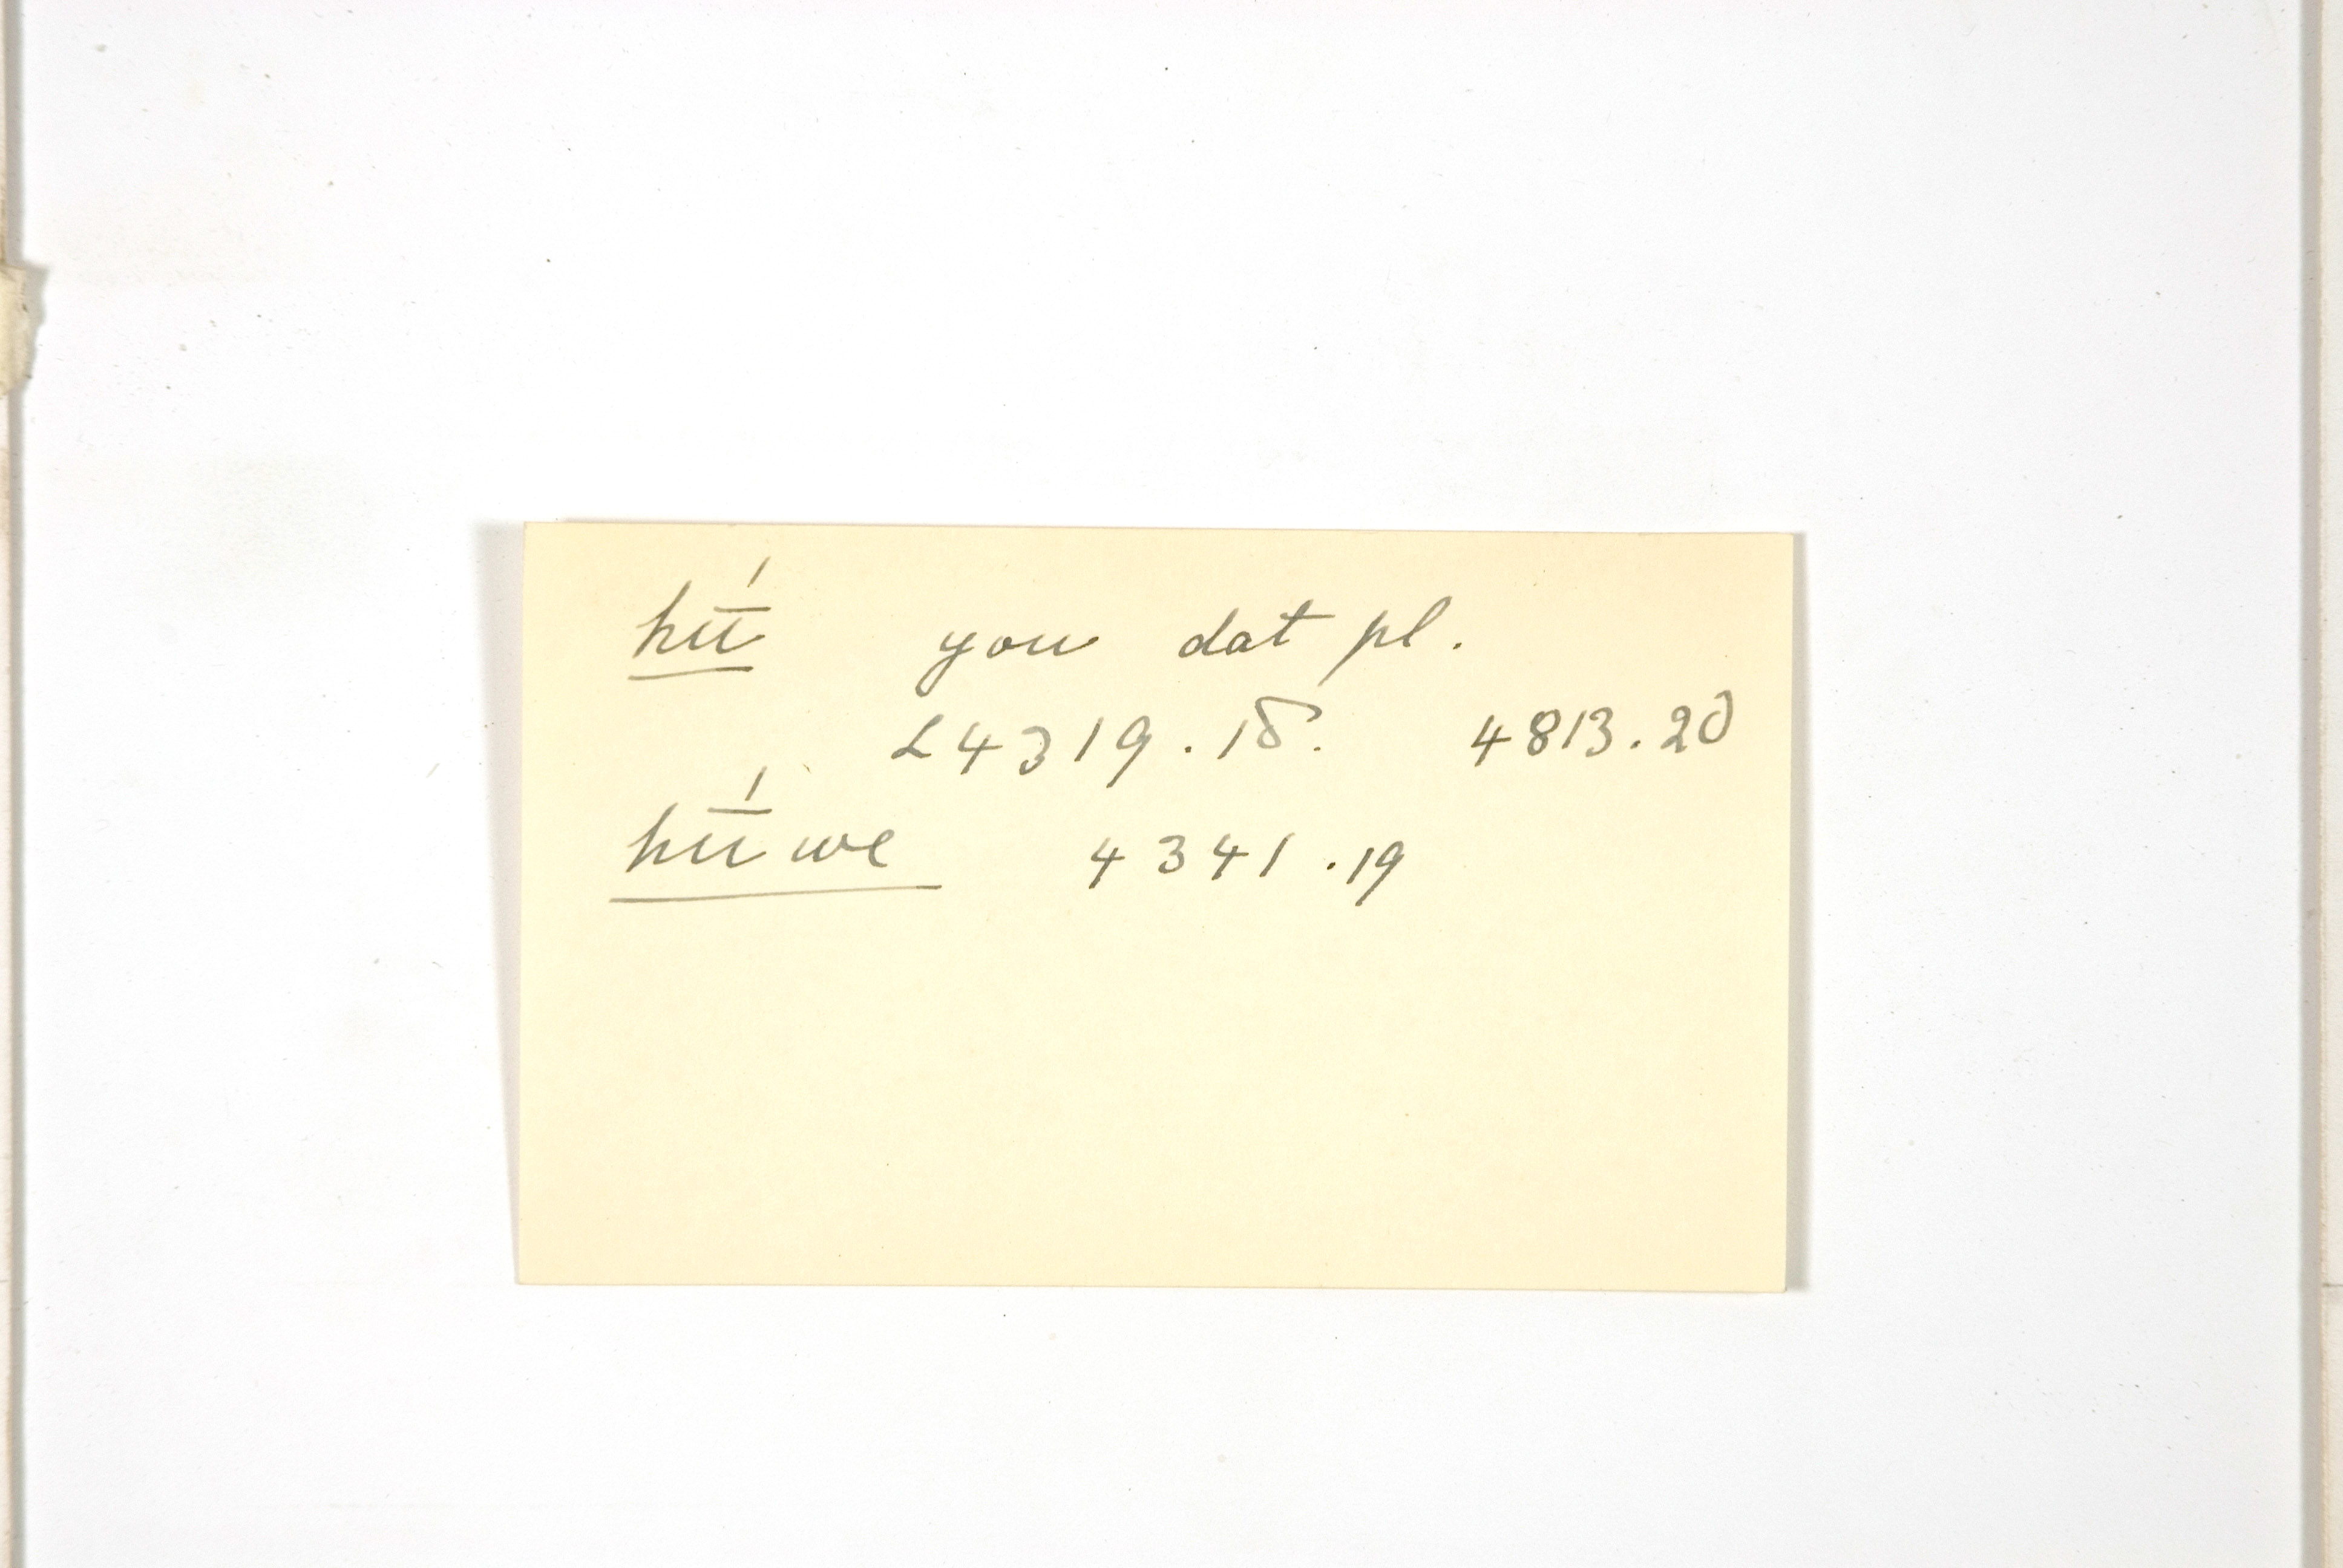 hū́ you dat pl.
L4319.18. 4813.20
hū́we 4341.19